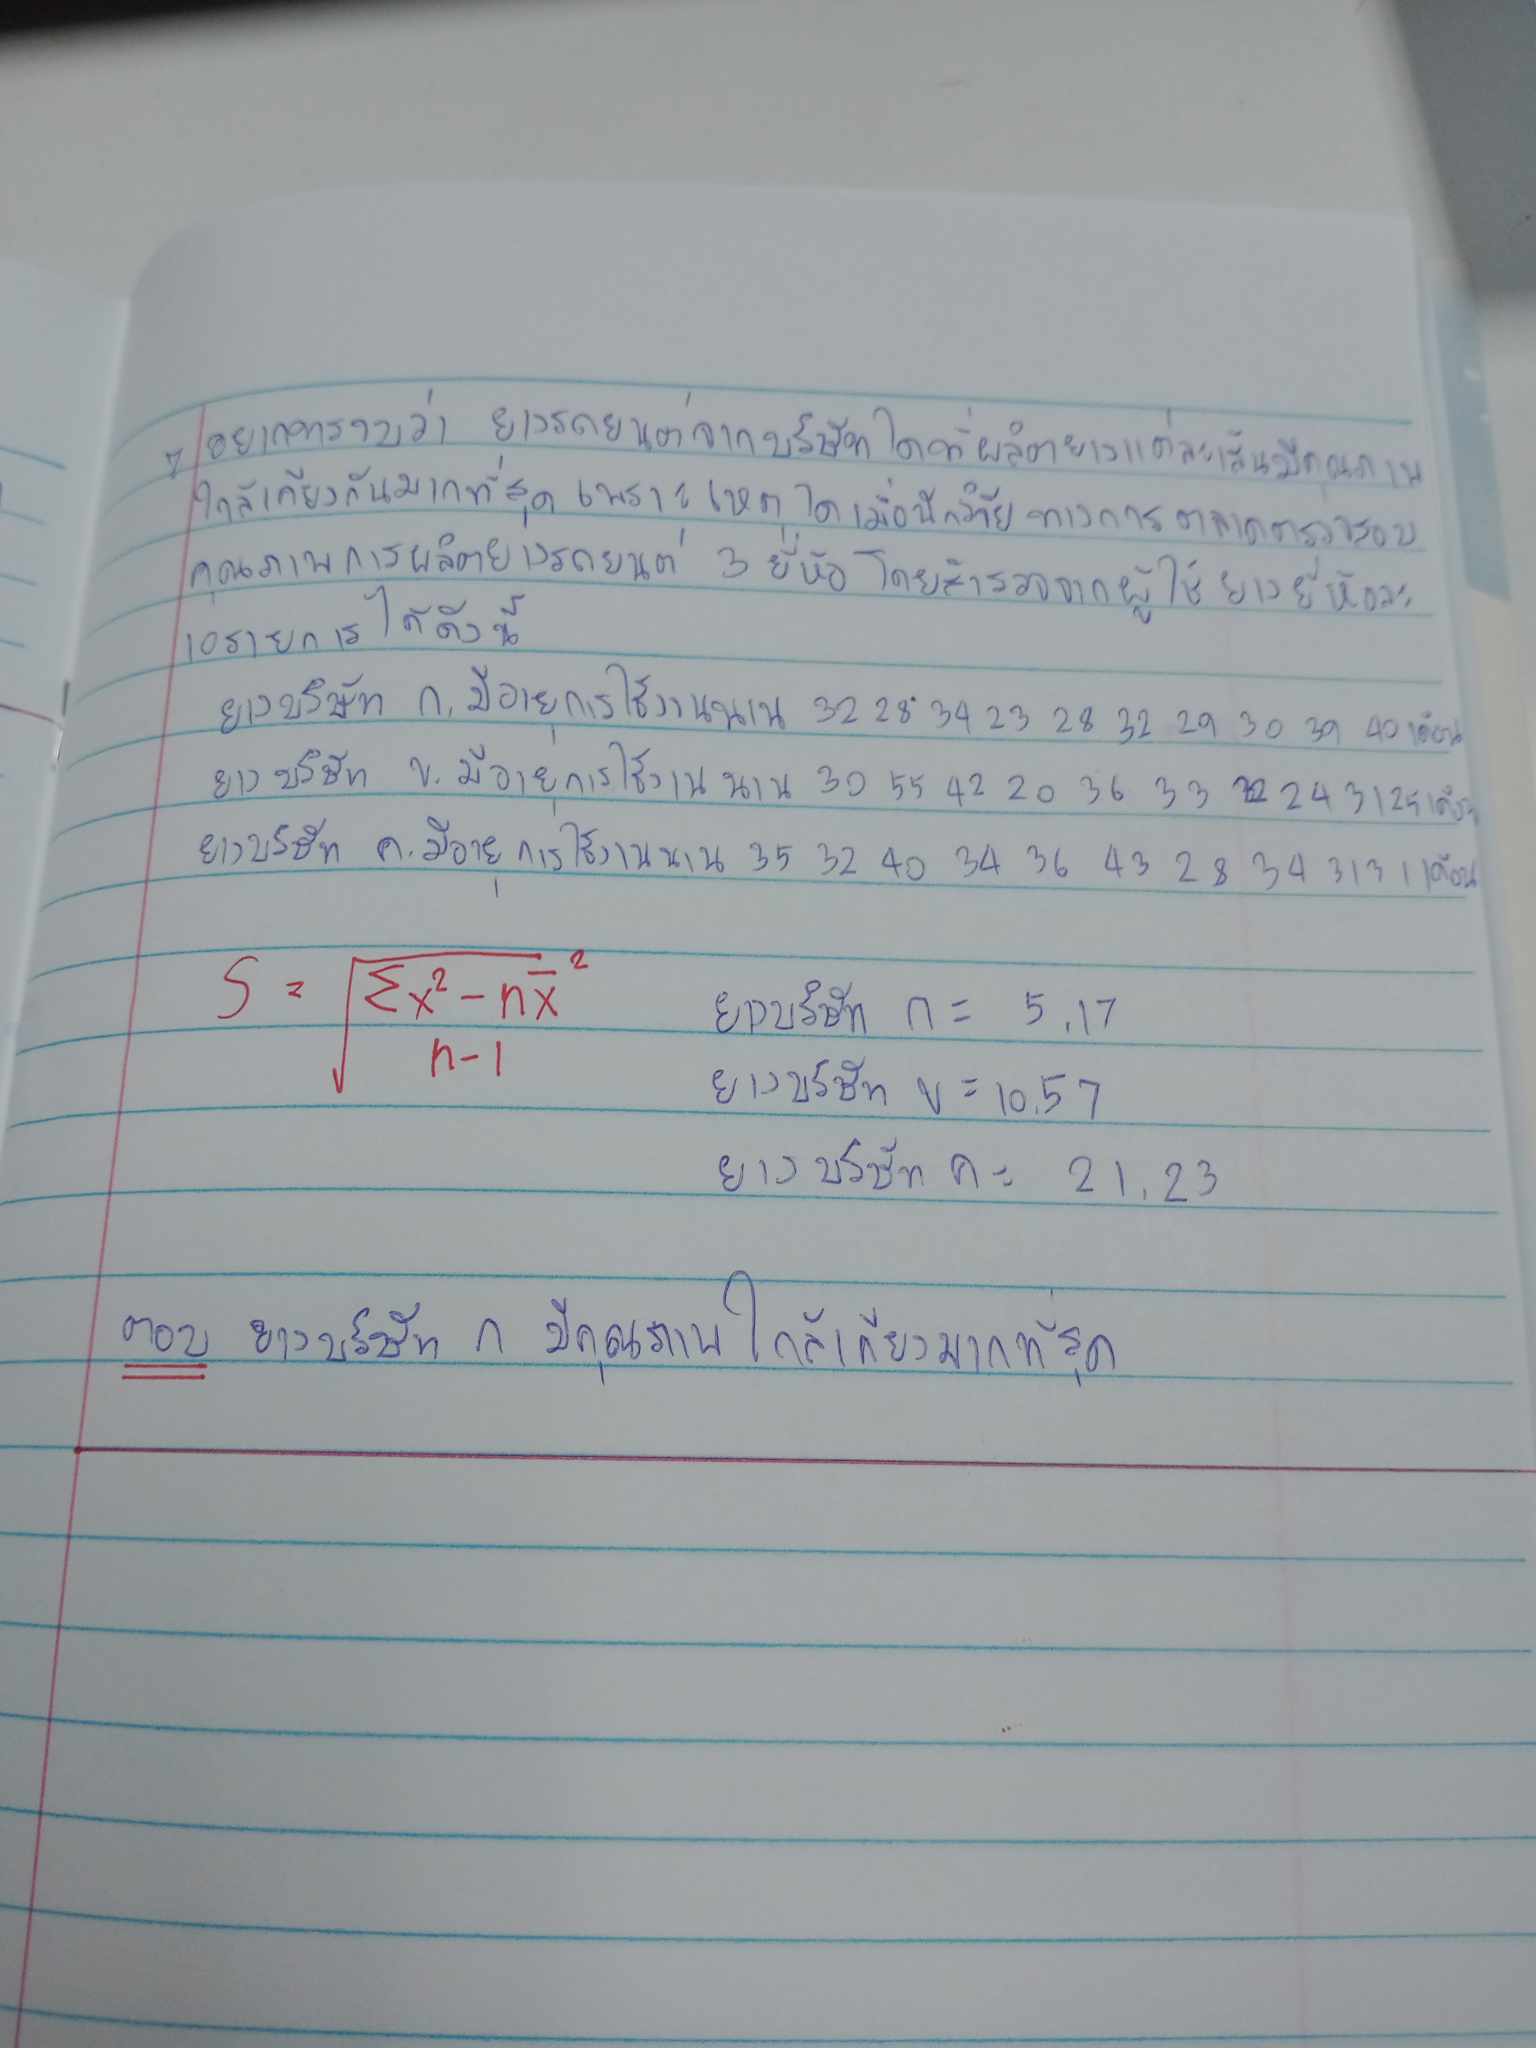 7 อยากทราบว่า ยางรถยนต์จากบริษัทใดที่ผลิตยางแต่ละเส้นมีคุณภาพ
ใกล้เคียงกันมากที่สุด เพราะเหตุใด เมื่อนักวิจัยทางการตลาดตรวจสอบ
คุณภาพการผลิตยางรถยนต์ 3 ยี่ห้อ โดยสำรวจจากผู้ใช้ยางยี่ห้อละ
10รายการ ได้ดังนี้
ยางบริษัท ก. มีอายุการใช้งานนาน 32 28 34 23 28 32 29 30 39 40 เดือน
ยางบริษัท ข. มีอายุการใช้งานนาน 30 55 42 20 36 33 22 24 31 25 เดือน
ยางบริษัท ค. มีอายุการใช้งานนาน 35 32 40 34 36 43 28 34 31 31 เดือน
S = √Σx² - nx̄² / n-1
ยางบริษัท ก = 5.17
ยางบริษัท ข = 10.57
ยางบริษัท ค = 21.23
ตอบ ยางบริษัท ก มีคุณภาพใกล้เคียงมากที่สุด